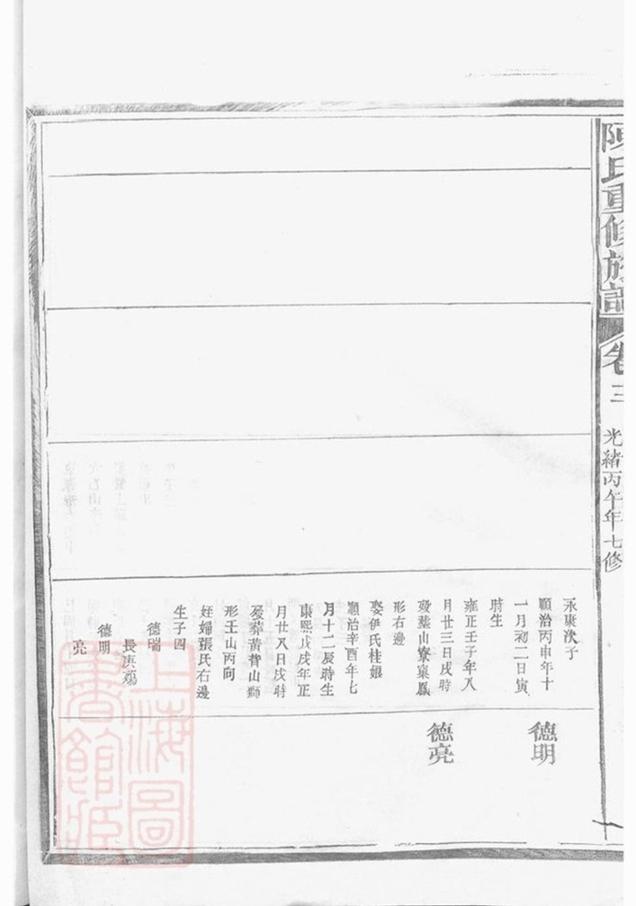 陳氏重修族譜
卷三
光緒丙午年七修
永康次子
順治丙申年十
一月初二日寅
時生
雍正壬子年八
月廿三日戌時
歿葬山寮窠鳳
形右邊
娶伊氏桂娘
順治辛酉年七
月十二辰時生
康熙戊戌年正
月廿八日戌時
歿葬黃背山獅
形壬山丙向
姪婦張氏右邊
生子四
德瑞
長庚殤
德明
亮
德明
德亮
上海圖
書館